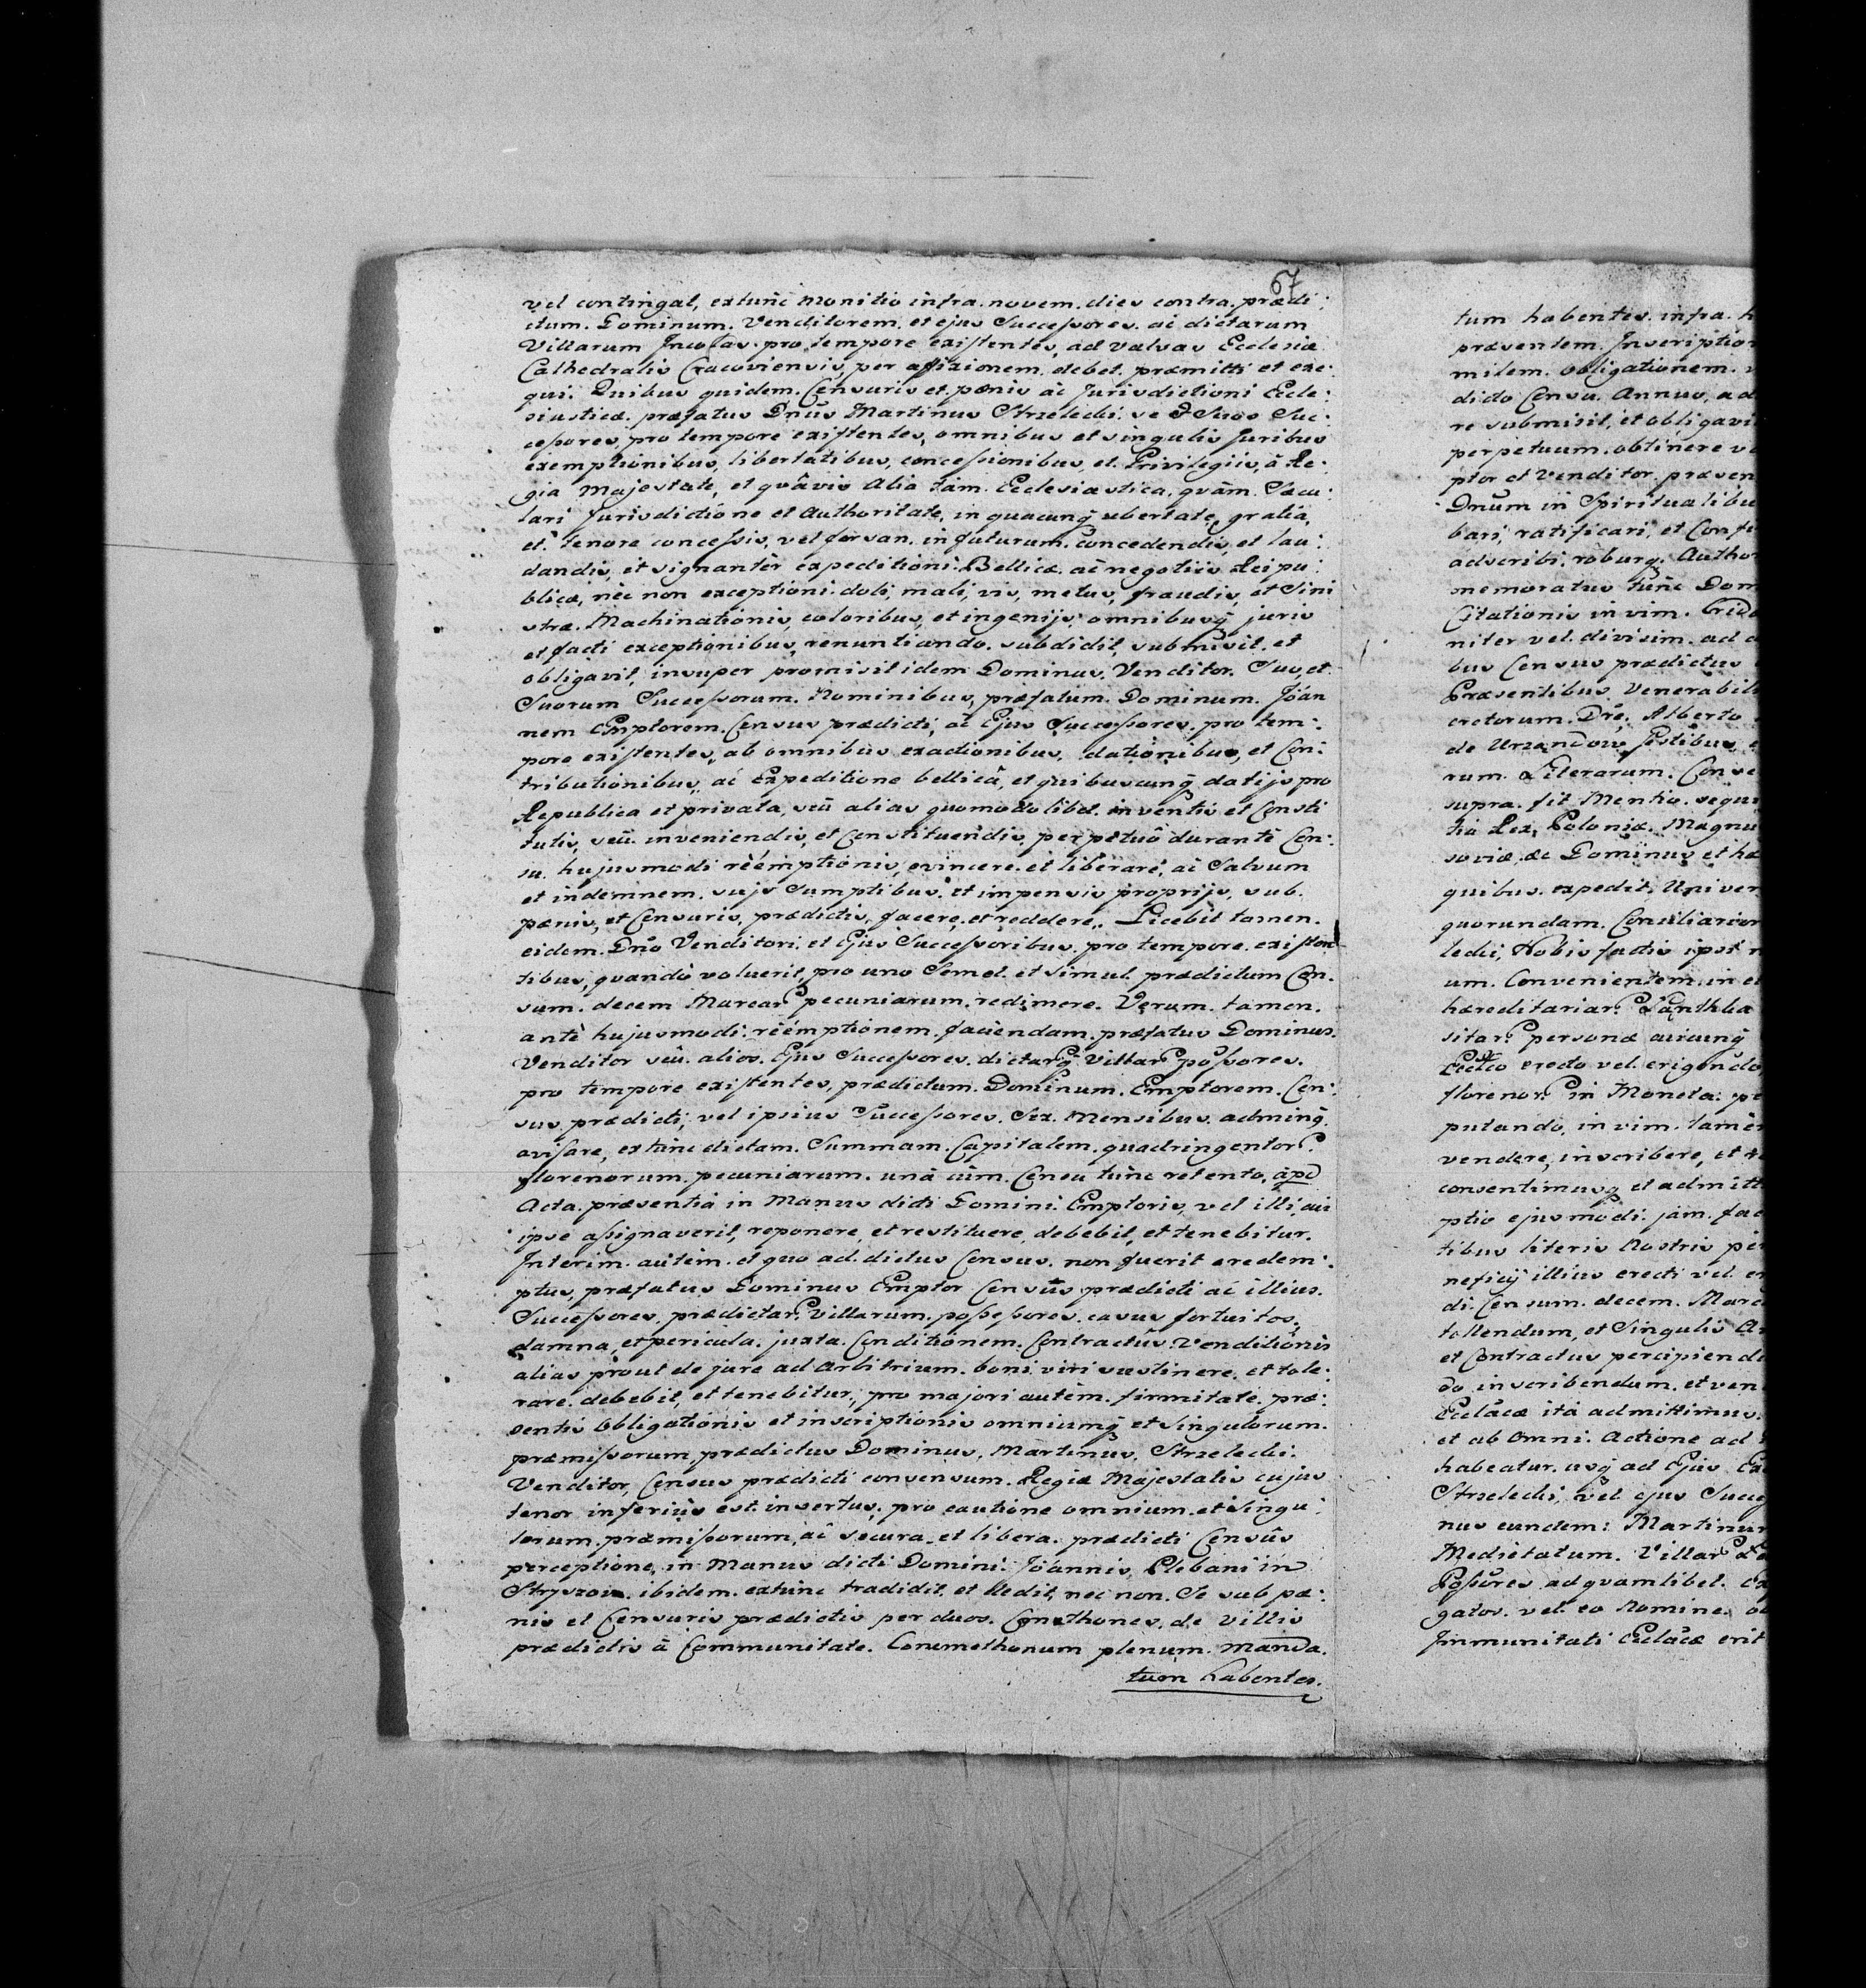 67
vel contingat, extunc monitio infra. novem. dies contra. prædi:
ctum. Dominum. Venditorem. et ejus Successores. ac dictarum
Villarum Incolas pro tempore existentes, ad valvas Ecclesiæ
Cathedralis Cracoviensis per affixionem. debet. præmitti et exe:
qui. Quibus quidem. Censuris et. pænis ac Jurisdictioni Eccle:
siasticæ. præfatus Dnus Martinus Strzelecki. se & Suos Suc:
cessores, pro tempore existentes, omnibus et singulis juribus
exemptionibus, libertatibus, concessionibus, et. Privilegiis, à Re:
gia Majestate, et quâvis alia tàm. Ecclesiastica, quàm. Sæcu:
lari Jurisdictione et Authoritate, in quacunq ubertate, gratia,
et. tenore concessis, vel forsan. in futurum. concedendis, et lau:
dandis, et signantèr expeditioni. Bellicæ. ac negotiis Reipu:
blicæ, nèc non exceptioni. doli, mali, vis, metus, fraudis, et Sini
stræ. Machinationis, coloribus, et ingenijs, omnibusq juris
et facti exceptionibus, renuntiando. subdidit, submisit. et
obligavit, insuper promisit idem Dominus. Venditor. Suo, et.
Suorum Successorum. Nominibus, præfatum. Dominum. Joán
nem Emptorem. Census prædicti, ac Ejus Successores. pro tem:
pore existentes, ab omnibus exactionibus, dationibus, et Con:
tributionibus, ac Expeditione bellicâ, et quibuscunq datijs pro
Republica et privata, seu alias quomodolibet. inventis et Consti
tutis, seu. inveniendis, et Constituendis, perpetuô durantè Cen:
su. hujusmodi rèémptionis, evincere. et liberare, ac Salvum
et indemnem. sujs Sumptibus. et impensis proprijs, sub.
pænis, et Censuris, prædictis, facere, et reddere. Licebit tamen.
eidem. Dno Venditori, et Ejus Successoribus. pro tempore. existen
tibus, quandò voluerit, pro uno Semel. et simul. prædictum Cen.
sum. decem Marcar pecuniarum. redimere. Verum. tamen.
antè hujusmodi. rèémptionem. faciendam. præfatus Dominus.
Venditor seu. alios. Ejus Successores. dictarq Villar possores.
pro tempore existentes, prædictum. Dominum. Emptorem. Cen:
sus, prædicti, vel ipsius Successores. Sex. Mensibus. adminq.
avisare, extunc dictam. Summam. Capitalem. quadringentor.
florenorum. pecuniarum. unà cum. Censu tunc retento, apd
Acta. præsentia in Manus dicti Domini. Emptoris, vel illi, cui
ipse assignaverit, reponere, et restituere, debebit, et tenebitur.
Interim. autem. et quo ad. dictus Census. non fuerit eredem:
ptus, præfatus Dominus Emptor Censûs prædicti ac illius.
Successores, prædictar. Villarum. possessores. casus fortuitos,
damna, et pericula. juxta. Conditionem. Contractûs. Venditionis
alias prout de jure ad arbitrium. boni viri sustinere. et tole:
rare. debebit, et tenebitur, pro majori autèm. firmitate. præ:
sentis obligationis et inscriptionis omniumq et singulorum.
præmissorum, prædictus Dominus. Martinus. Strzelecki:
Venditor, Census prædicti consensum. Regiæ Majestatis cujus
tenor inferius est. insertus, pro cautione omnium. et singu:
lorum. præmissorum, ac secura. et libera. prædicti Censûs
perceptione, in Manus dicti Domini. Joánnis, Plebani in
Stryszow. ibidem. extunc tradidit. et dedit, nec non. Se sub pæ:
nis et Censuris prædictis per duos. Cmethones. de villis
prædictis à Communitate. Conmethonum plenum. manda.
tum habentes.
tum habentes. infra. h
præsentem. Inscription
midem. obligationem.
dicto Censu. Annuo, ad
re submisit, et obligavi
perpetuum. obtinere v
ptor et Venditor. præsen
Dnum in Spiritualibu
bari, ratificari, et Confi
adscribi. roburq. Author
memoratus tunc Dom
Citationis in vim. Crido
niter vel. divisim. ad
bus Census prædictus
Præsentibus. Venerabili
cretorum. Dre. Alberto
de Urzandow testibus
rum. Literarum. Conse
supra. fit Mentio. sequi
tia Rex, Poloniæ. Magnu
soviæ, &c Dominus, et hæ
quibus. expedit, Univer
quorundam. Consiliarior
lecki, Nobis factis ipsi
um. Convenientem, in
hæreditariar.
sitar. personæ cuicunq
erecto vel. erigendo
florenor. in Moneta. p
putando, in vim. tamen
vendere, inscribere, et
consentimusq et admitt
ptio ejusmodi. jam. fac
tibus literis Nostris pe
neficij illius erecti vel. e
di. Censum. decem. Marc
tollendum, et Singulis A
et Contractus percipiend
do. inscribendum. et ven
Ecclacæ ità admittimus.
et ab Omni. Actione ad
habeatur. usq ad Ejus
Strzelecki, vel ejus Succe
nus eundem: Martinum
Medietatum. Villar
Possores ad quamlibet.
gatos. vel. eo Nomine.
Immunitati Ecclacæ erit